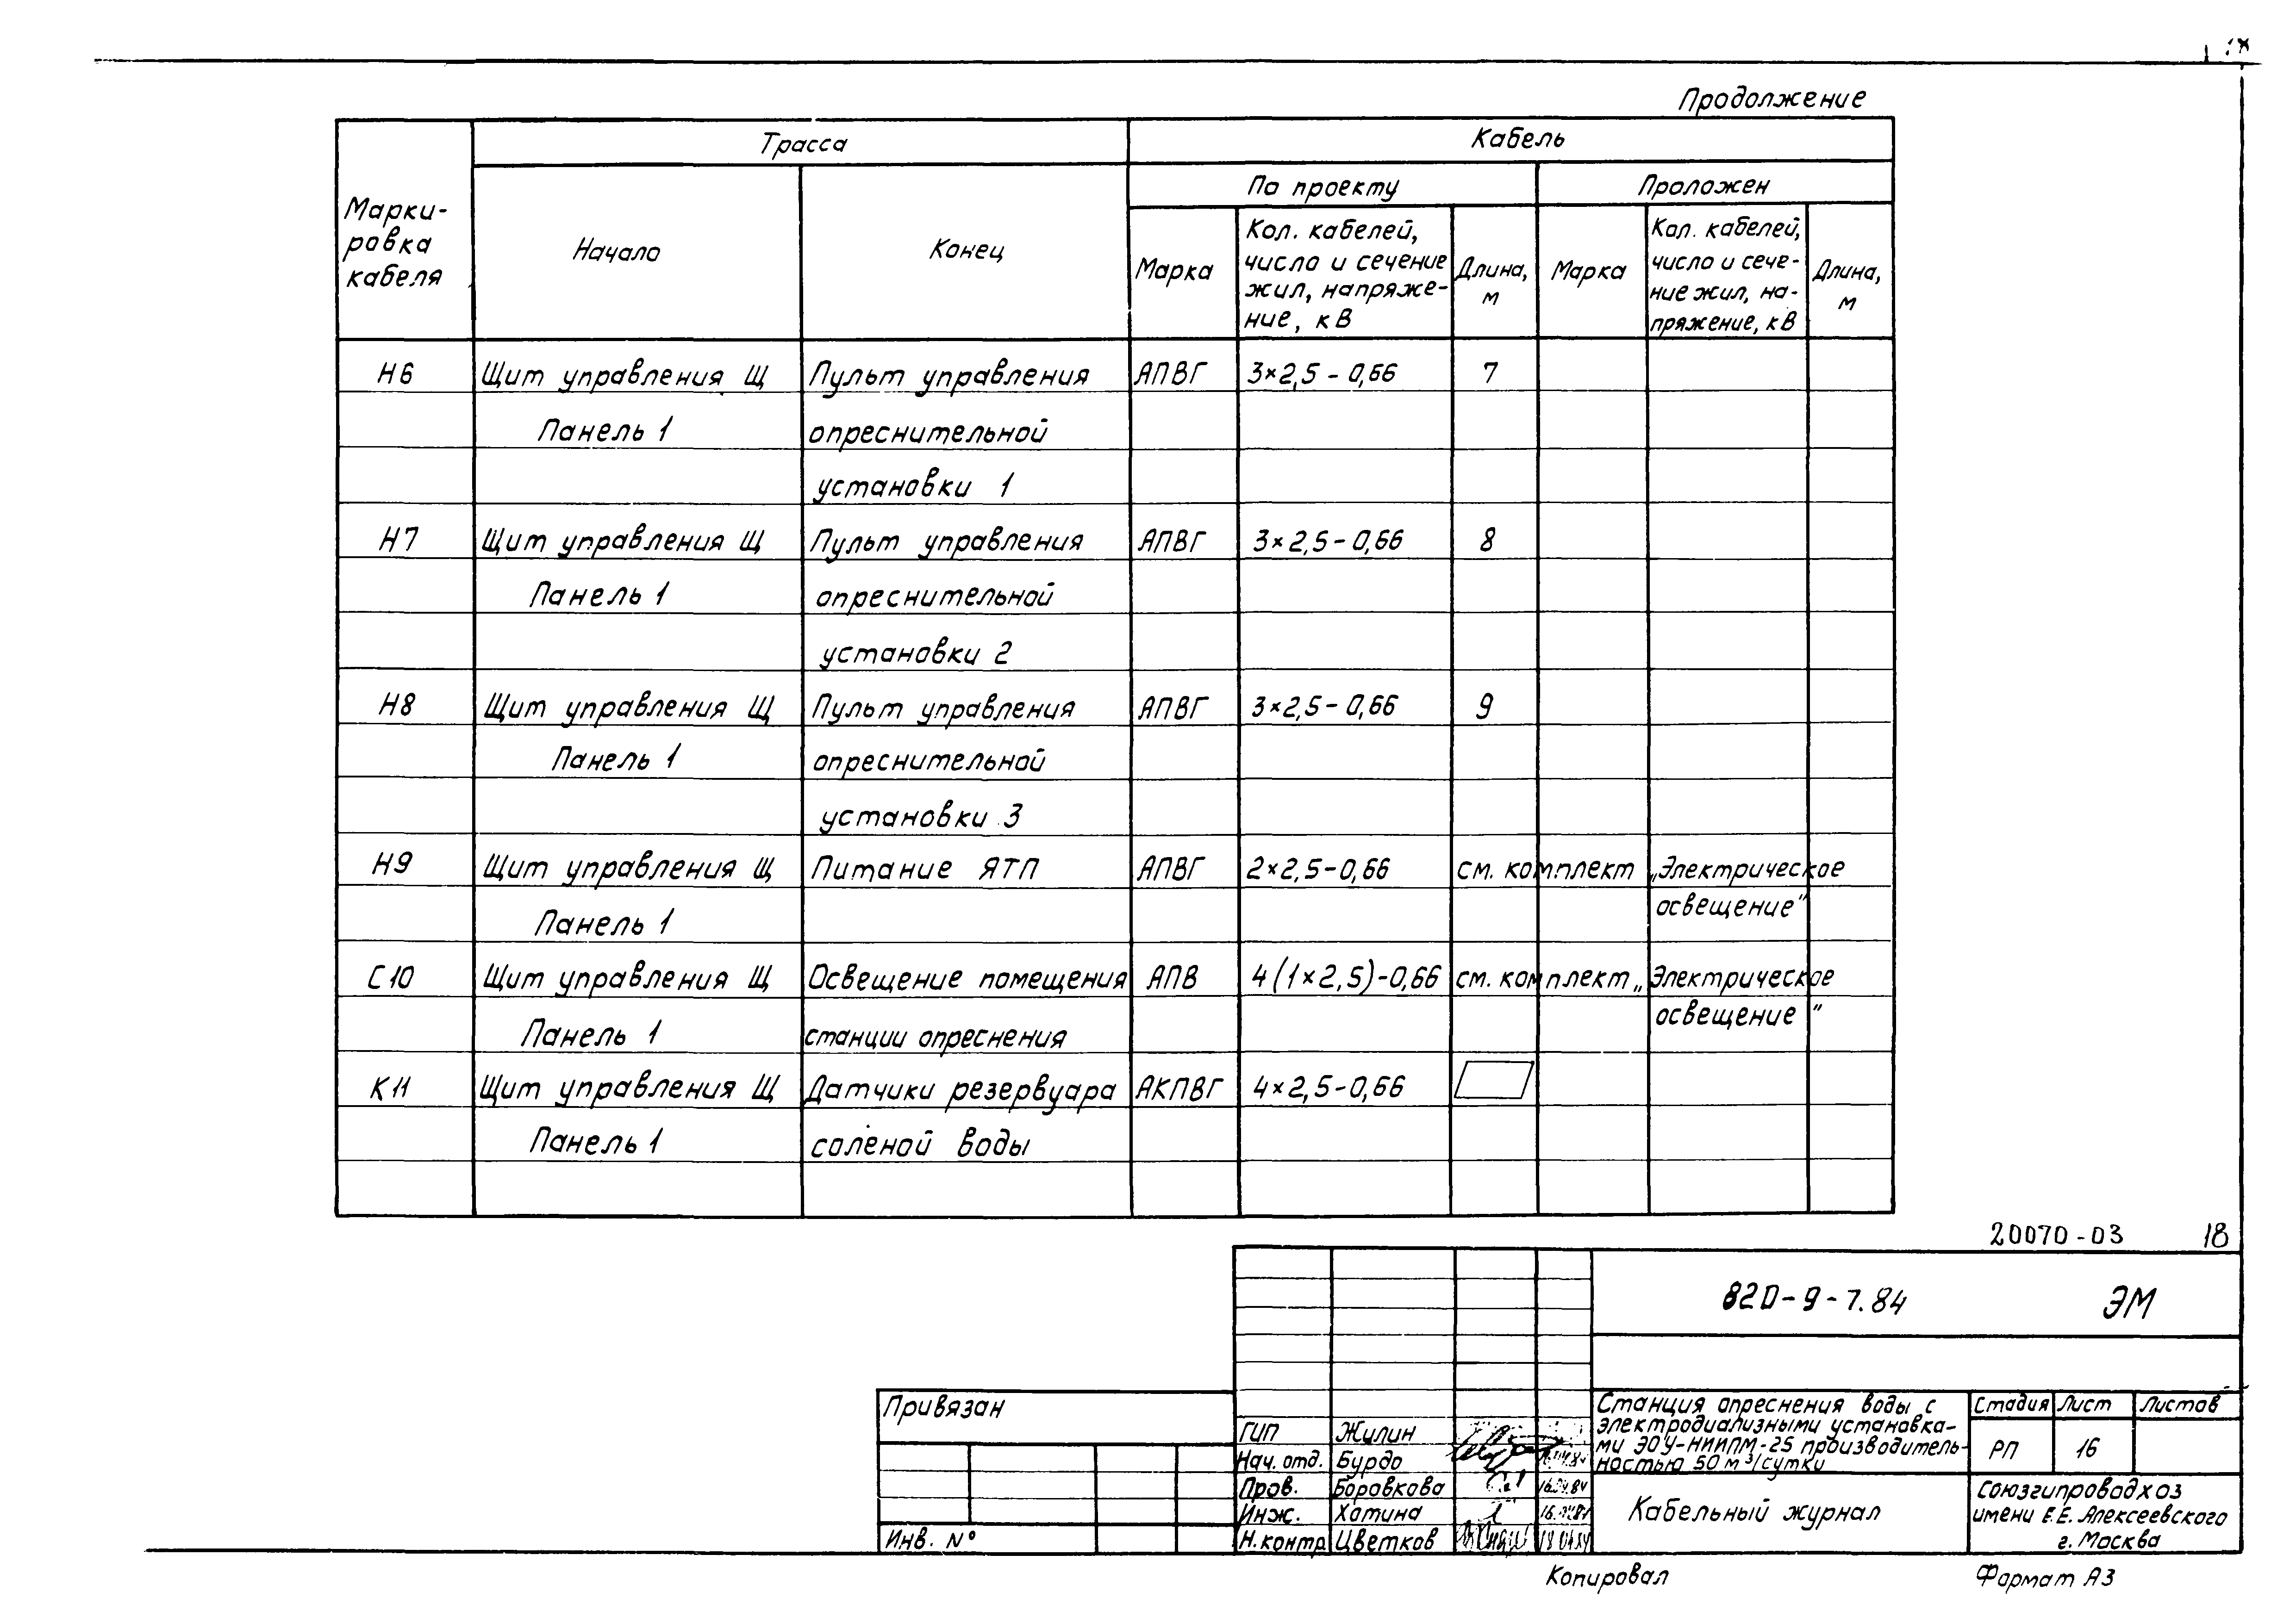 Продолжение
Марки-
ровка
кабеля
Трасса
Кабель
Начало
Конец
По проекту
Проложен
Марка
Кол. кабелей,
число и сечение
жил, напряже-
ние, кВ
Длина,
м
Марка
Кол. кабелей,
число и сече-
ние жил, на-
пряжение, кВ
Длина,
м
Н6 Щит управления Щ Пульт управления АПВГ 3×2,5-0,66 7
Панель 1 опреснительной
установки 1
Н7 Щит управления Щ Пульт управления АПВГ 3×2,5-0,66 8
Панель 1 опреснительной
установки 2
Н8 Щит управления Щ Пульт управления АПВГ 3×2,5-0,66 9
Панель 1 опреснительной
установки 3
Н9 Щит управления Щ Питание ЯТП АПВГ 2×2,5-0,66 см. комплект „Электрическое
Панель 1 освещение"
С10 Щит управления Щ Освещение помещения АПВ 4(1×2,5)-0,66 см. комплект „Электрическое
Панель 1 станции опреснения освещение"
К11 Щит управления Щ Датчики резервуара АКПВГ 4×2,5-0,66
Панель 1 соленой воды
20070-03 18
820-9-7.84 ЭМ
Привязан
Инв. №
ГИП Жилин
Нач. отд. Бурдо
Пров. Боровкова 16.04.84
Инж. Хатина
Н.контр Цветков
Станция опреснения воды с
электродиализными установка-
ми ЭОУ-НИИПМ-25 производитель-
ностью 50 м³/сутки
Стадия Лист Листов
РП 16
Кабельный журнал
Союзгипроводхоз
имени Е.Е. Алексеевского
г. Москва
Копировал
Формат А3